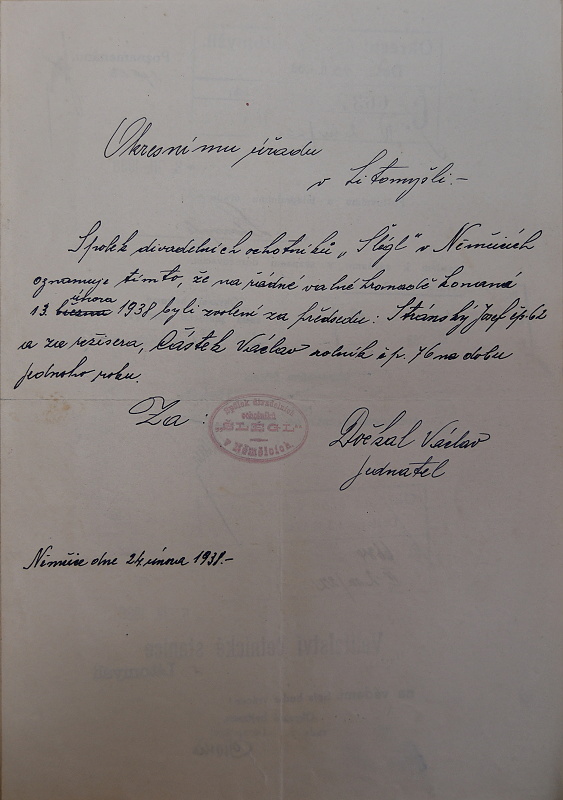 Okresnímu úřadu
v Litomyšli.-
Spolek divadelních ochotníků „Šlégl" v Němčicích
oznamuje tímto, že na řádné valné hromadě konané
února
13. března 1938 byli zvoleni za předsedu: Stránský Josef čp 62
a za režisera, Částek Václav rolník čp. 76 na dobu
jednoho roku.
Za :
Spolek divadelních
ochotníků
„ŠLÉGL"
v Němčicích
Doležal Václav
jednatel
Němčice dne 24. února 1938.-